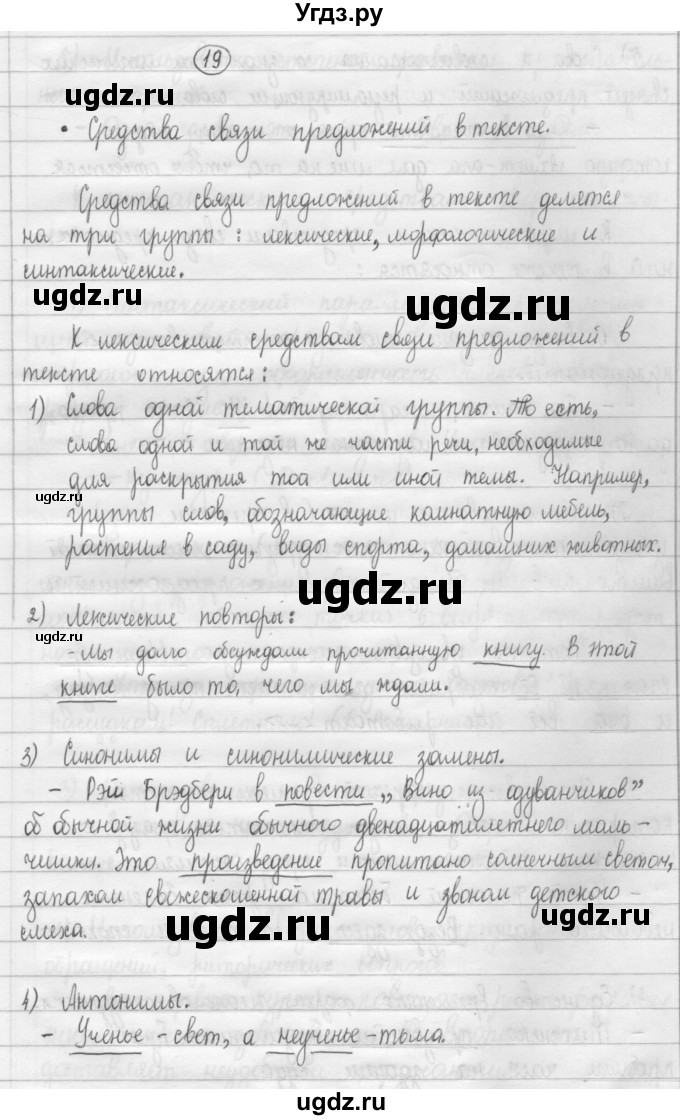 Угдз.ру
19
• Средства связи предложений в тексте.
Средства связи предложений в тексте делятся
на три группы: лексические, морфологические и
синтаксические.
К лексическим средствам связи предложений в
тексте относятся:
1) Слова одной тематической группы. То есть,
слова одной и той же части речи, необходимые
для раскрытия тоа или иной темы. Например,
группы слов, обозначающие комнатную мебель,
растения в саду, виды спорта, домашних животных.
2) Лексические повторы:
- Мы долго обсуждали прочитанную книгу. В этой
книге было то, чего мы ждали.
3) Синонимы и синонимические замены.
- Рэй Брэдбери в повести „Вино из одуванчиков”
об обычной жизни обычного двенадцатилетнего маль-
чишки. Это произведение пропитано солнечным светом,
запахом свежескошенной травы и звоном детского
смеха.
4) Антонимы.
- Ученье - свет, а неученье - тьма.
ugdz.ru
ugdz.ru
ugdz.ru
ugdz.ru
ugdz.ru
ugdz.ru
ugdz.ru
ugdz.ru
ugdz.ru
ugdz.ru
ugdz.ru
ugdz.ru
ugdz.ru